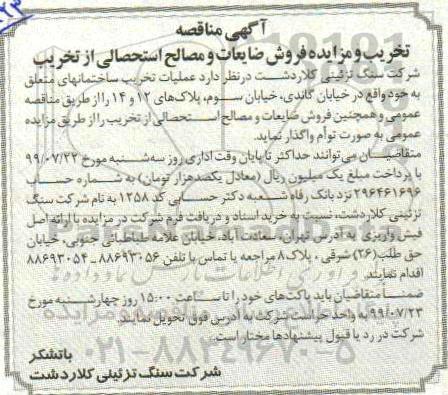 آگهی مناقصه
تخریب و مزایده فروش ضایعات و مصالح استحصالی از تخریب
شرکت سنگ تزئینی کلاردشت در نظر دارد عملیات تخریب ساختمانهای متعلق
به خود واقع در خیابان گاندی، خیابان سوم، پلاک‌های ۱۲ و ۱۴ را از طریق مناقصه
عمومی و همچنین فروش ضایعات و مصالح استحصالی از تخریب را از طریق مزایده
عمومی به صورت توأم واگذار نماید.
متقاضیان می‌توانند حداکثر تا پایان وقت اداری روز سه‌شنبه مورخ ۹۹/۰۷/۲۲
با پرداخت مبلغ یک میلیون ریال (معادل یکصدهزار تومان) به شماره حساب
۲۹۶۴۶۱۶۹۶ نزد بانک رفاه شعبه دکتر حسابی کد ۱۲۵۸ به نام شرکت سنگ
تزئینی کلاردشت، نسبت به خرید اسناد و دریافت فرم شرکت در مزایده با ارائه اصل
فیش واریزی به آدرس تهران، سعادت آباد، خیابان علامه طباطبائی جنوبی، خیابان
حق طلب (۲۶) شرقی، پلاک ۸ مراجعه یا تماس با تلفن ۸۸۶۹۳۰۵۶ ـ ۸۸۶۹۳۰۵۴
اقدام نمایند.
ضمناً متقاضیان باید پاکت‌های خود را تا ساعت ۱۵:۰۰ روز چهارشنبه مورخ
۹۹/۰۷/۲۳ به واحد حراست شرکت به آدرس فوق تحویل نمایند.
شرکت در رد یا قبول پیشنهادها مختار است.
باتشکر
شرکت سنگ تزئینی کلاردشت
ParsNamadData
۰۲۱-۸۸۳۴۹۶۷۰-۵